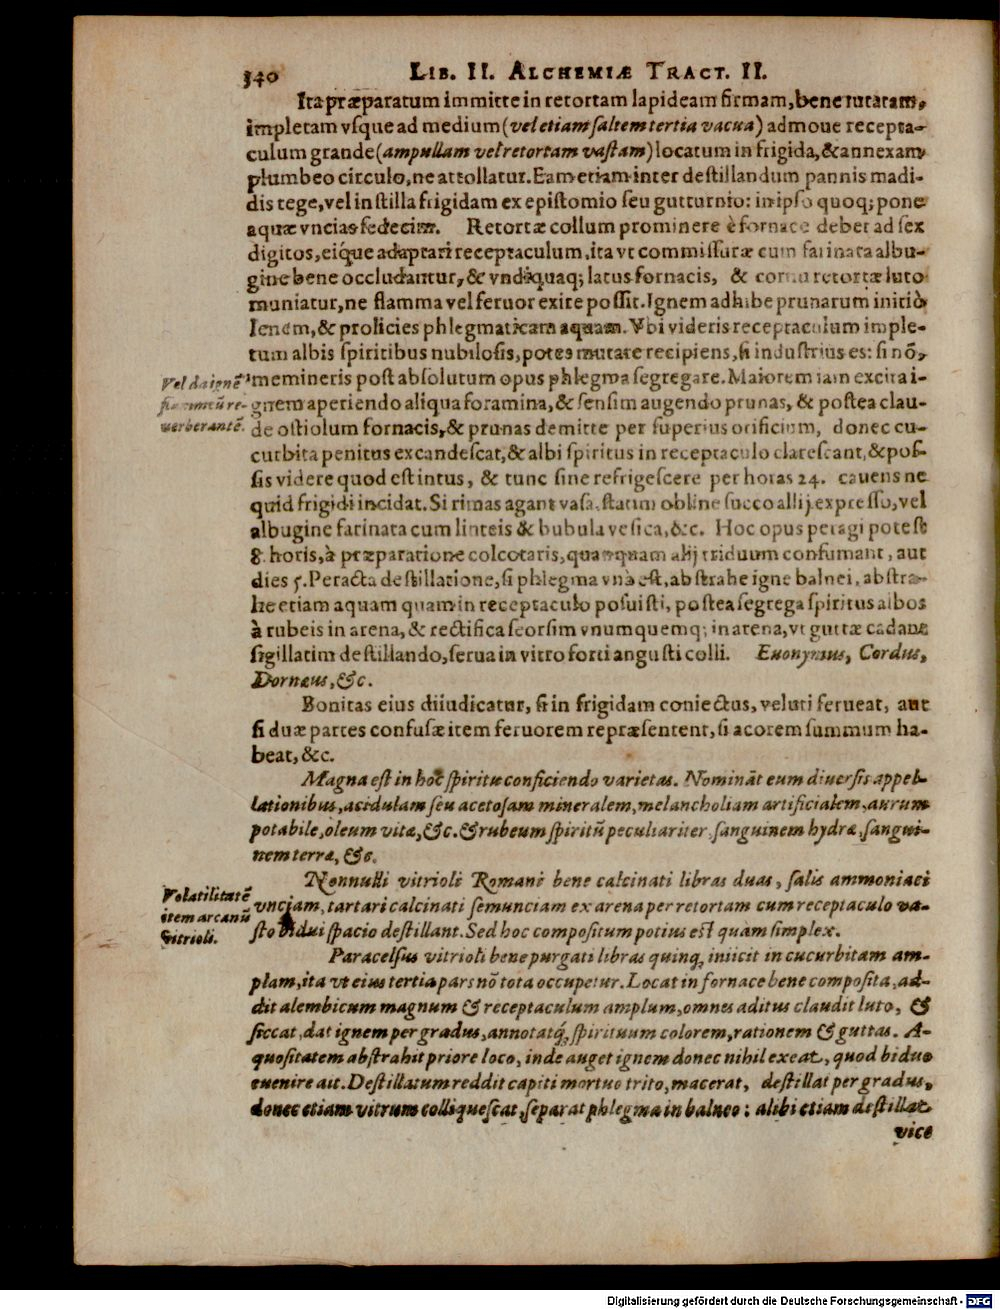 340 LIB. II. ALCHEMIÆ TRACT. II.
Ita præparatum immitte in retortam lapideam firmam, bene lutatam,
impletam vsque ad medium (vel etiam saltem tertia vacua) admoue recepta-
culum grande (ampullam vel retortam vastam) locatum in frigida, & annexam
plumbeo circulo, ne attollatur. Eam etiam inter destillandum pannis madi-
dis tege, vel instilla frigidam ex epistomio seu gutturnio: in ipso quoq; pone
aquæ vncias sedecim. Retortæ collum prominere è fornace debet ad sex
digitos, eiq́ue adaptari receptaculum, ita vt commissuræ cum farinata albu-
gine bene occludantur, & vndiquaq; latus fornacis, & cornu retortæ luto
muniatur, ne flamma vel feruor exire possit. Ignem adhibe prunarum initiò
lenem, & prolicies phlegmaticam aquam. Vbi videris receptaculum imple-
tum albis spiritibus nubilosis, potes mutare recipiens, si industrius es: si nõ,
Vel da ignẽ memineris post absolutum opus phlegma segregare. Maiorem iam excita i-
re- gnem aperiendo aliqua foramina, & sensim augendo prunas, & postea clau-
uerberantẽ. de ostiolum fornacis, & prunas demitte per superius orificium, donec cu-
curbita penitus excandescat, & albi spiritus in receptaculo clarescant, & pos-
sis videre quod est intus, & tunc sine refrigescere per horas 24. cauens ne
quid frigidi incidat. Si rimas agant vasa, statim obline succo allij expresso, vel
albugine farinata cum linteis & bubula vesica, &c. Hoc opus peragi potest
8. horis, à præparatione colcotaris, quamquam alij triduum consumant, aut
dies 5. Peracta destillatione, si phlegma vnà est, abstrahe igne balnei, abstra-
he etiam aquam quam in receptaculo posuisti, postea segrega spiritus albos
à rubeis in arena, & rectifica seorsim vnumquemq; in arena, vt guttæ cadant
sigillatim destillando, serua in vitro forti angusti colli. Euonymus, Cordus,
Dornæus, &c.
Bonitas eius diiudicatur, si in frigidam coniectus, veluti ferueat, aut
si duæ partes confusæ item feruorem repræsentent, si acorem summum ha-
beat, &c.
Magna est in hoc spiritu conficiendo varietas. Nominãt eum diuersis appel-
lationibus, acidulam seu acetosam mineralem, melancholiam artificialem, aurum
potabile, oleum vitæ, &c. & rubeum spiritũ peculiariter sanguinem hydræ, sangui-
nem terræ, &c.
Nonnulli vitrioli Romani bene calcinati libras duas, salis ammoniaci
Volatilitatẽ vnciam, tartari calcinati semunciam ex arena per retortam cum receptaculo va-
item arcanũ sto bidui spacio destillant. Sed hoc compositum potius est quam simplex.
Vitrioli.
Paracelsus vitrioli bene purgati libras quinq; iniicit in cucurbitam am-
plam, ita vt eius tertia pars nõ tota occupetur. Locat in fornace bene composita, ad-
dit alembicum magnum & receptaculum amplum, omnes aditus claudit luto, &
siccat, dat ignem per gradus, annotatq́; spirituum colorem, rationem & guttas. A-
quositatem abstrahit priore loco, inde auget ignem donec nihil exeat, quod biduo
euenire ait. Destillatum reddit capiti mortuo trito, macerat, destillat per gradus,
donec etiam vitrum colliquescat, separat phlegma in balneo: alibi etiam destillat
vice
Digitalisierung gefördert durch die Deutsche Forschungsgemeinschaft - DFG